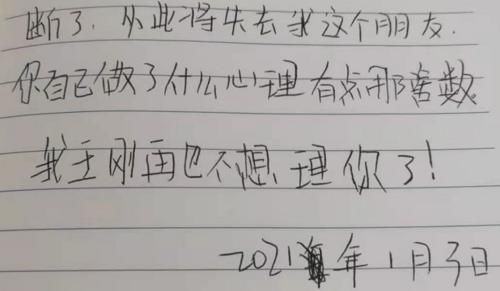 断了.从此将失去我这个朋友.
你自己做了什么心理有点那啥数
我王刚再也不想理你了!
2021年1月3日